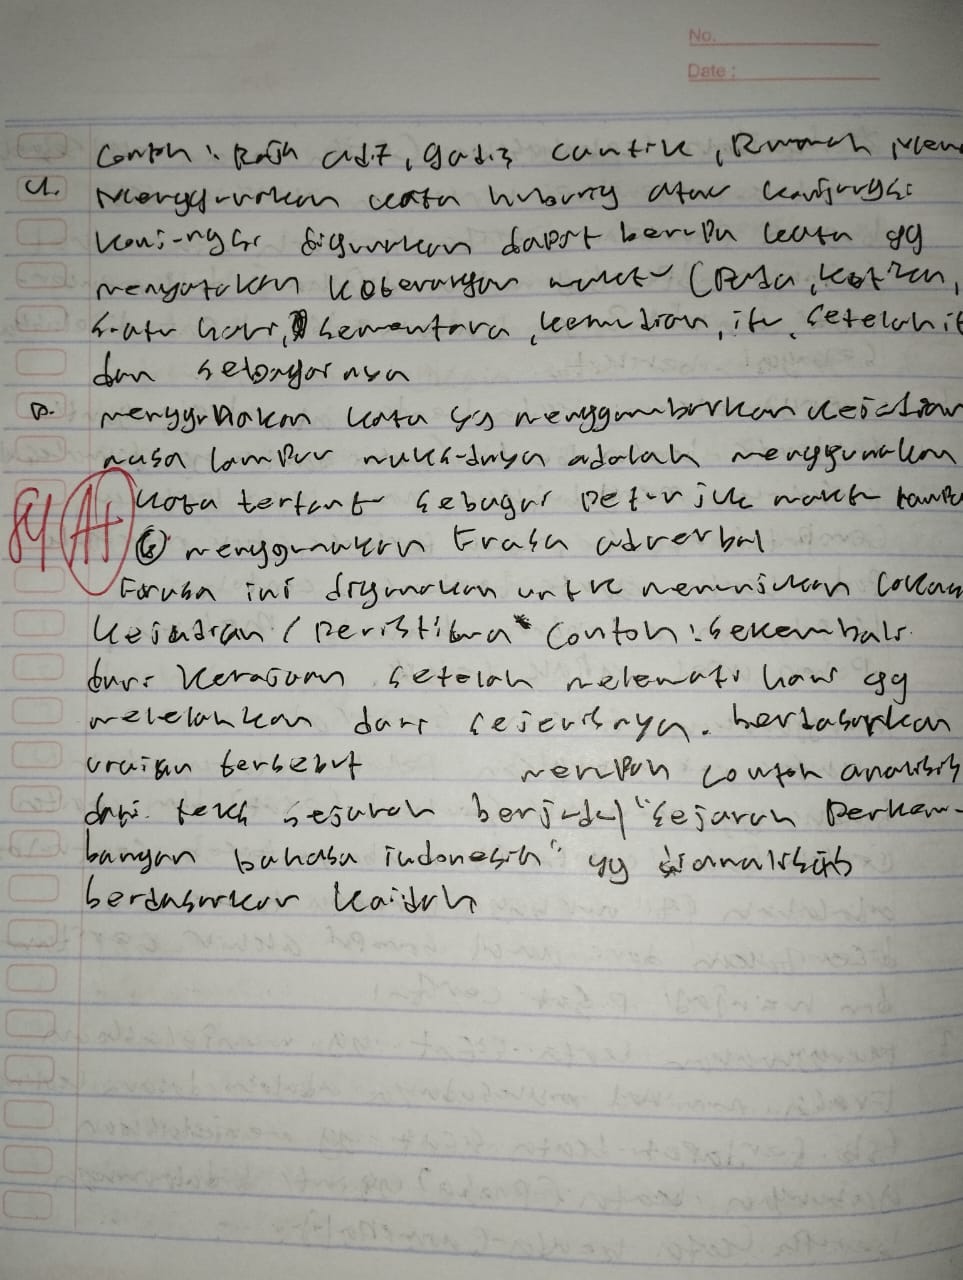 No.
Date :
Contoh : Raja adil, gadis cantik, Rumah
4. Menggunakan kata hubung atau
digunakan dapat berupa kata yg
menyatakan keterangan waktu (Pada,
hari, sementara, kemudian, itu, setelah it
dan sebagainya
5. menggunakan kata yg menggambarkan kejadian
masa lampau maksudnya adalah menggunakan
84 A+ kata tertentu sebagai petunjuk waktu
6 menggunakan frasa adverbial
Farasa ini digunakan untuk
kejadian / peristiwa contoh : sekembali
dari kerajaan setelah melewati hari yg
melelahkan dari sejenisnya. berdasarkan
uraian tersebut merupan contoh analisis
dari teks sejarah berjudul "Sejarah Perkem-
bangan bahasa indonesia" yg dianalisis
berdasarkan kaidah